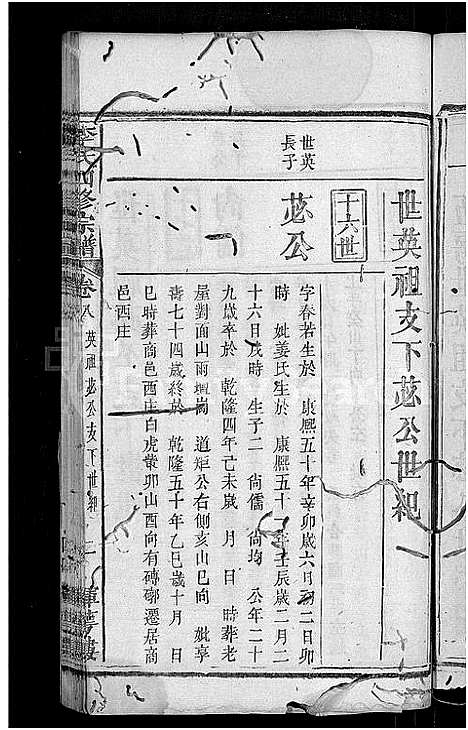 世英祖支下苾公世紀
十六世
世英
長子
苾公
字春若生於 康熙五十年辛卯歲六月初二日卯
時 妣姜氏生於 康熙五十一年壬辰歲二月二
十六日戌時 生子二 尙儒 尙均 公年二十
九歲卒於 乾隆四年己未歲 月 日 時葬老
屋對面山雨壇崗 道矩公右側亥山巳向 妣享
壽七十四歲終於 乾隆五十年乙巳歲十月 日
巳時葬商邑西庄白虎蒙卯山酉向有磚槨遷居商
邑西庄
李氏四修宗譜
卷八 英祖苾公支下世紀 二